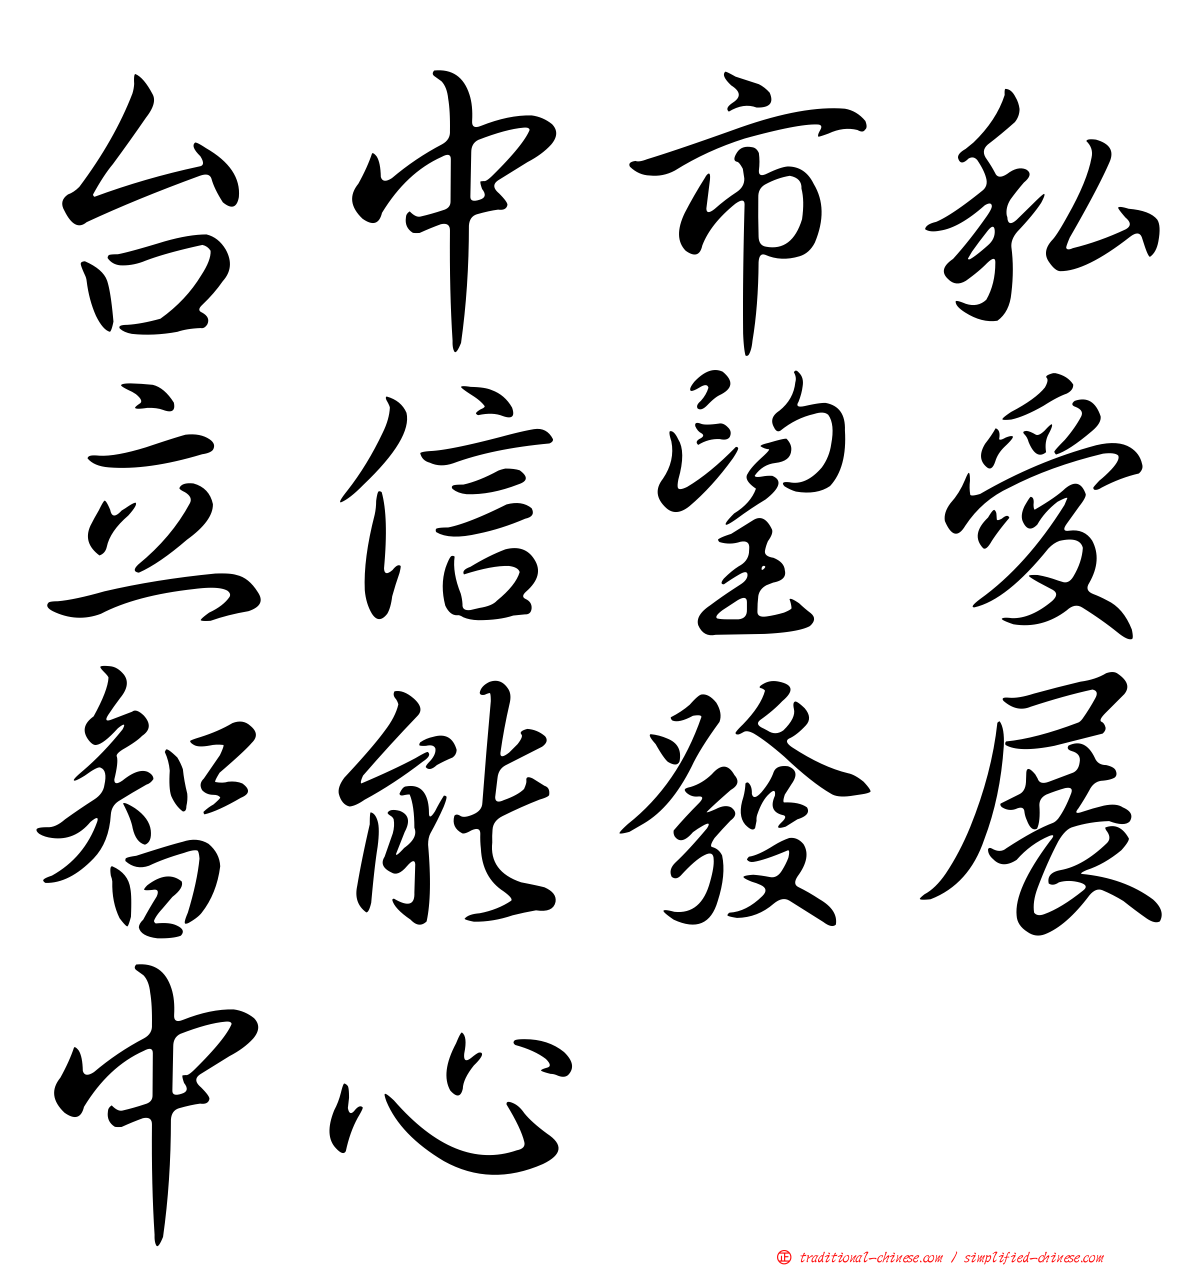 台中市私
立信望愛
智能發展
中心
正 traditional-chinese.com / simplified-chinese.com